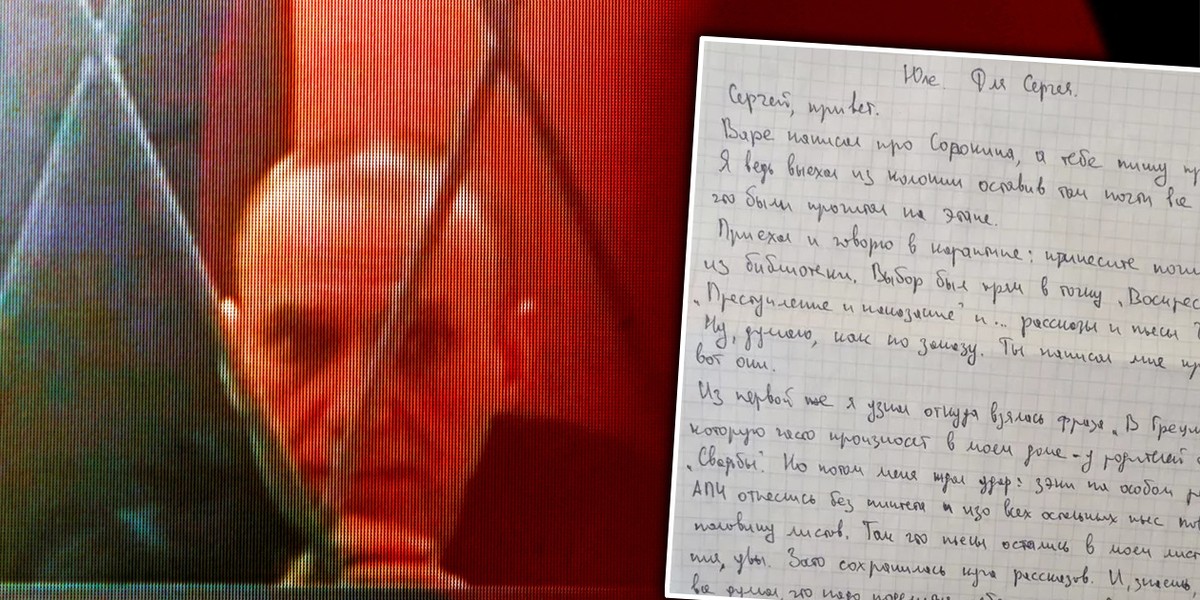 Юле. Для Сергея.
Сергей, привет.
Варе написал про Сорокина, а тебе пишу пр
Я ведь выехал из колонии оставив там почти все
это были прошлая на этапе.
Приехал и говорю в карантине: принесите
из библиотеки. Выбор был прям в точку „Воскрес
„Преступление и наказание" и... рассказы и пьесы
Ну, думаю, как по заказу. Ты написал мне пр
вот они.
Из первой же я узнал откуда взялась фраза „В Грец
которую часто произносят в моем доме - у родителей
„Свадьбы". Но потом меня ждал удар: зэки на особом
АПЧ отнеслись без пиетета и изо всех остальных пьес
половину листов. Так что пьесы остались в моем
увы. Зато сохранилась куча рассказов. И, знаешь,
все думал, что надо